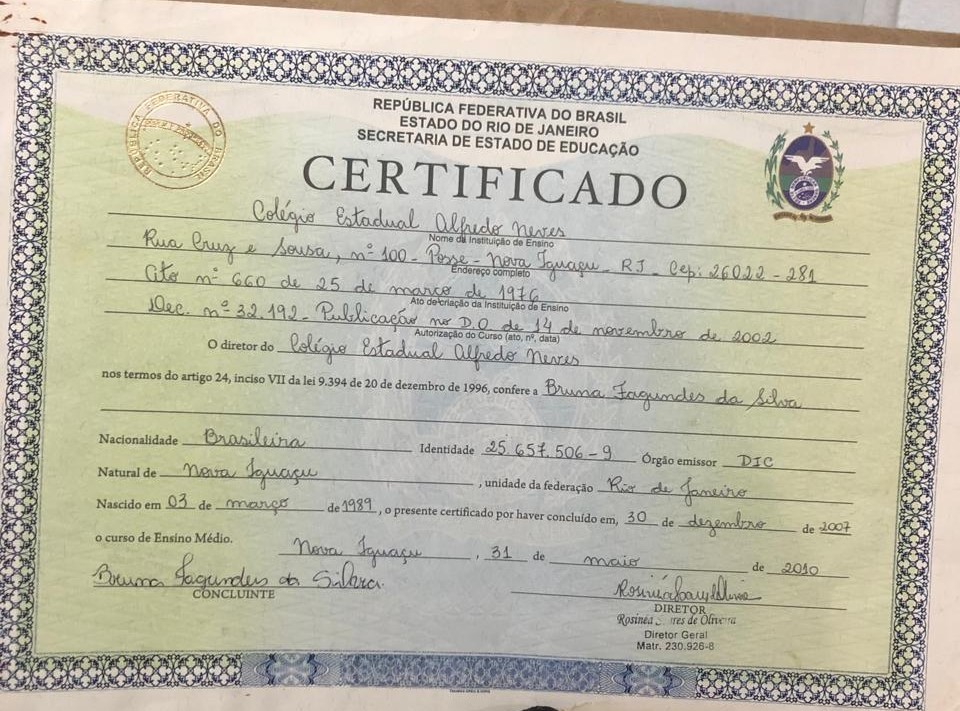 REPÚBLICA FEDERATIVA DO BRASIL
REPÚBLICA FEDERATIVA DO BRASIL
ESTADO DO RIO DE JANEIRO
SECRETARIA DE ESTADO DE EDUCAÇÃO
CERTIFICADO
Colégio Estadual Alfredo Neves
Nome da Instituição de Ensino
Rua Cruz e Sousa, nº 100 - Posse - Nova Iguaçu - RJ - Cep: 26022 - 281
Endereço completo
Ato nº 660 de 25 de março de 1976
Ato de criação da Instituição de Ensino
Dec. nº 32.192 - Publicação no D.O de 14 de novembro de 2002
Autorização do Curso (ato, nº, data)
O diretor do Colégio Estadual Alfredo Neves
nos termos do artigo 24, inciso VII da lei 9.394 de 20 de dezembro de 1996, confere a Bruna Fagundes da Silva
Nacionalidade Brasileira Identidade 25.657.506-9 Órgão emissor DIC
Natural de Nova Iguaçu, unidade da federação Rio de Janeiro
Nascido em 03 de março de 1989, o presente certificado por haver concluído em, 30 de dezembro de 2007
o curso de Ensino Médio.
Nova Iguaçu, 31 de maio de 2010
Bruna Fagundes da Silva
CONCLUINTE
DIRETOR
Rosinéa de Oliveira
Diretor Geral
Matr. 230.926-8